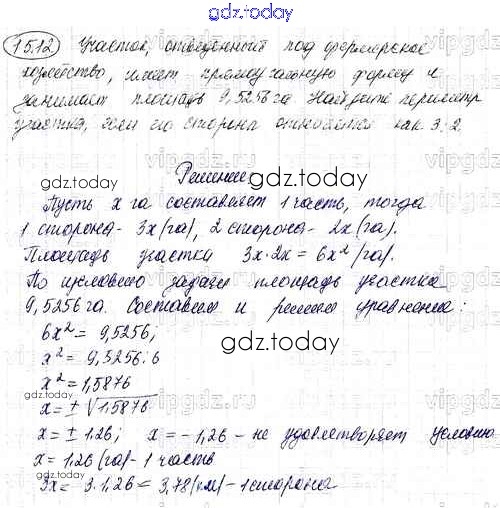 gdz.today
15.12 Участок, отведенный под фермерское
хозяйство, имеет прямоугольную форму и
занимает площадь 9,5256 га Найдите периметр
участка, если его стороны относятся как 3:2
gdz.today
Решение.
gdz.today
Пусть x га составляет 1 часть, тогда
1 сторона - 3x (га), 2 сторона - 2x (га).
Площадь участка 3x·2x = 6x² (га).
По условию задачи площадь участка
9,5256 га. Составим и решим уравнение:
6x² = 9,5256;
x² = 9,5256:6
gdz.today
x² = 1,5876
gdz.today
x = ± √1,5876
x = ± 1,26; x = -1,26 - не удовлетворяет условию
x = 1,26 (га) - 1 часть
3x = 3·1,26 = 3,78 (км) - 1 сторона
gdz.today
vipgdz.ru